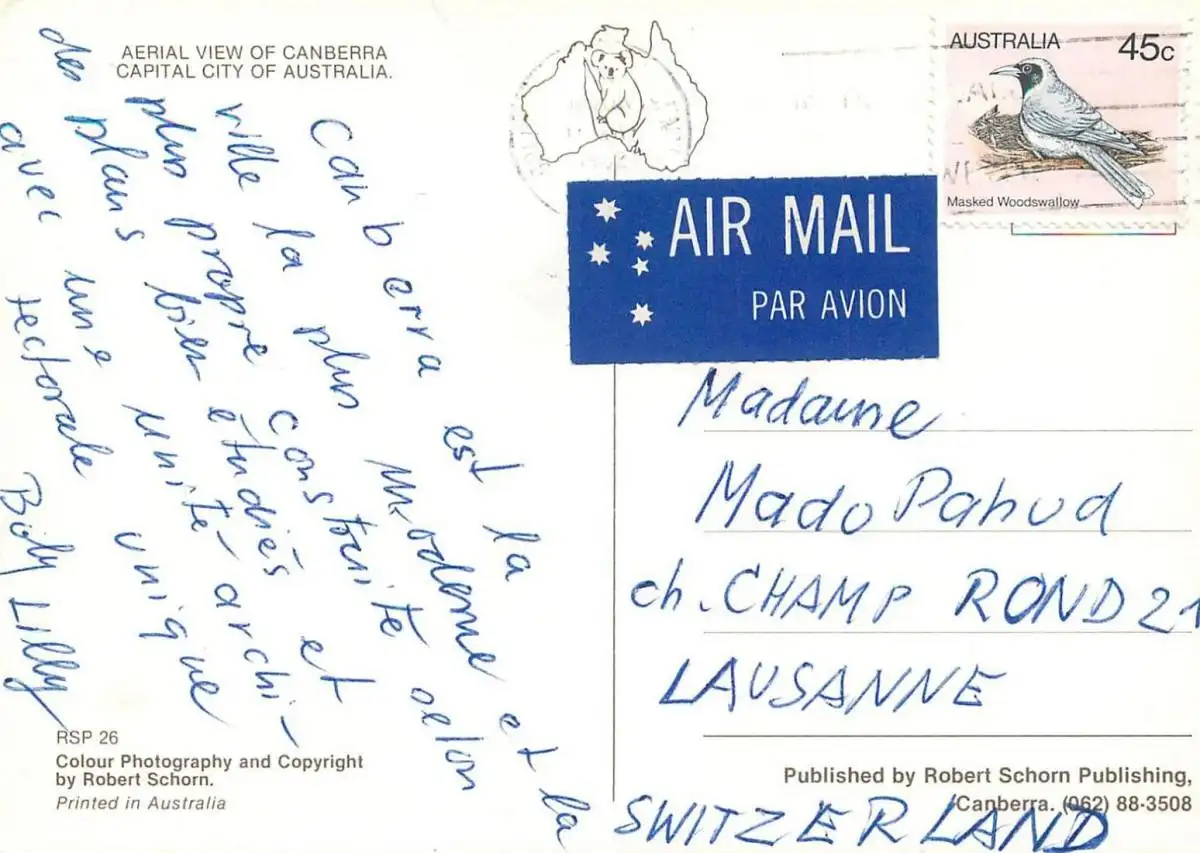 AERIAL VIEW OF CANBERRA
CAPITAL CITY OF AUSTRALIA.
Canberra est la
ville la plus moderne et la
plus propre construite selon
des plans bien étudiés et
avec une unité archi-
tectorale unique
Lilly
RSP 26
Colour Photography and Copyright
by Robert Schorn.
Printed in Australia
AUSTRALIA 45c
Masked Woodswallow
AIR MAIL
PAR AVION
Madame
Mado Pahud
ch. CHAMP ROND 21
LAUSANNE
SWITZERLAND
Published by Robert Schorn Publishing,
Canberra. (062) 88-3508